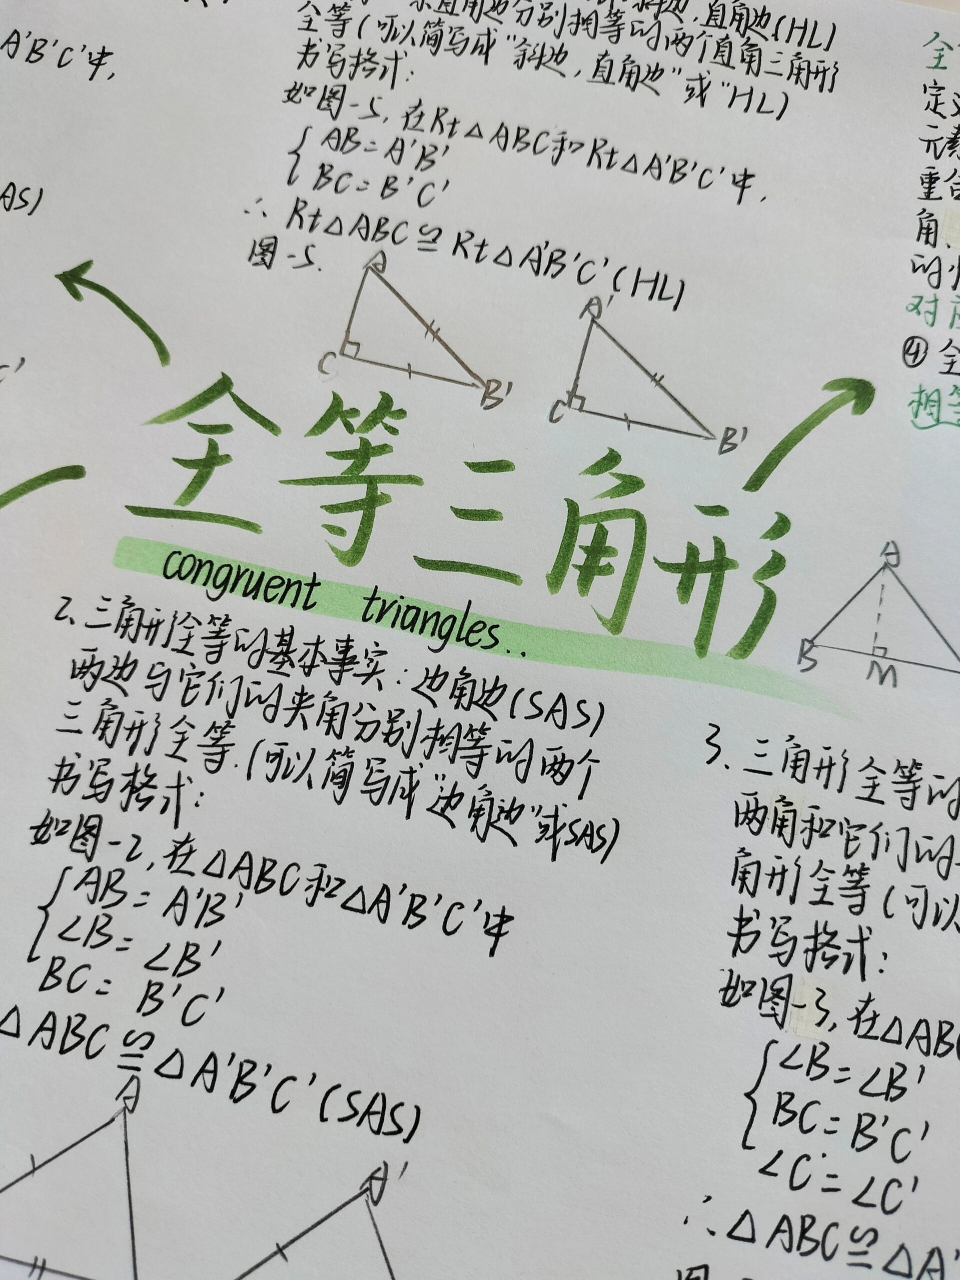 A'B'C'中,
AS)
直角边(HL)
全等(可以简写成"斜边,直角边"或"HL)
书写格式:
如图-5,在Rt△ABC和Rt△A'B'C'中,
AB=A'B'
BC=B'C'
∴Rt△ABC≌Rt△A'B'C'(HL)
图-5.
A
C
B'
A'
C'
B'
全等三角形
congruent triangles..
2、三角形全等的基本事实:边角边(SAS)
两边与它们的夹角分别相等的两个
三角形全等.(可以简写成"边角边"或SAS)
书写格式:
如图-2,在△ABC和△A'B'C'中
AB=A'B'
∠B=∠B'
BC=B'C'
△ABC≌△A'B'C'(SAS)
A
A'
全
定义
元素
重合
角、
的
对应
④全
相等
A
B
M
3、三角形全等的
两角和它们的
角形全等(可以
书写格式:
如图-3,在△ABC
∠B=∠B'
BC=B'C'
∠C=∠C'
∴△ABC≌△A'
图